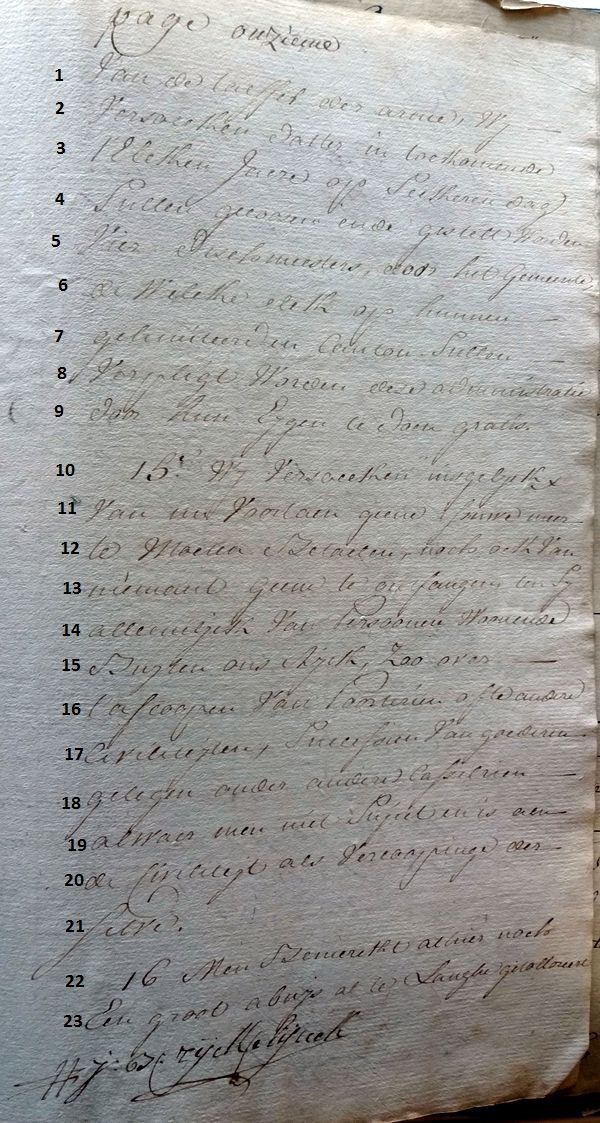 page onzieme
1 Van de taeffel der arme, Wy
2 Versoecken datter in toekomende
3 t'Elcken Jaere op Sinxeren dag
4 Sullen gecosen ende gestelt Worden
5 Vier dischmeesters, door het Gemeente,
6 de Welcke elck op hunnen
7 gelimiteerden Canton Sullen
8 Verpligt Worden dese administratie
9 door hun Eygen te doen gratis.
10 15.e Wy Versoecken insgelyckx
11 Van nu Voortaen geene meer
12 te Moeten Betaelen, noch ock Van
13 niemant geene te ontfangen, ten Sy
14 alleenlyck Van Persoonen Woonende
15 Buyten ons Ryck, Zoo over
16 t'afcoopen Van Poorterien ofte andere
17 Civileyten, Successien Van goederen
18 gelegen onder andere Casselrien
19 alwaer men niet Subject en is aen
20 de Civileyt als Vercoopinge der
21 Selve.
22 16 Men Bemerckt alhier noch
23 Een groot abuys al te Langhe